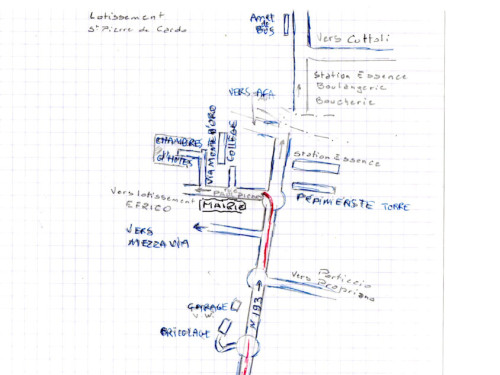 Lotissement
St Pierre de Cardo
Arret
de
Bus
Vers Cuttoli
Station Essence
Boulangerie
Boucherie
VERS AFA
CHAMBRES
d'HOTES
VIA MONTE D'ORO
COLLEGE
Station Essence
Vers Lotissement
EFRICO
MAIRIE
PEPINIERISTE TORRE
VERS
MEZZAVIA
Vers
Porticcio
Propriano
GARAGE
V.W.
BRICOLAGE
N 193